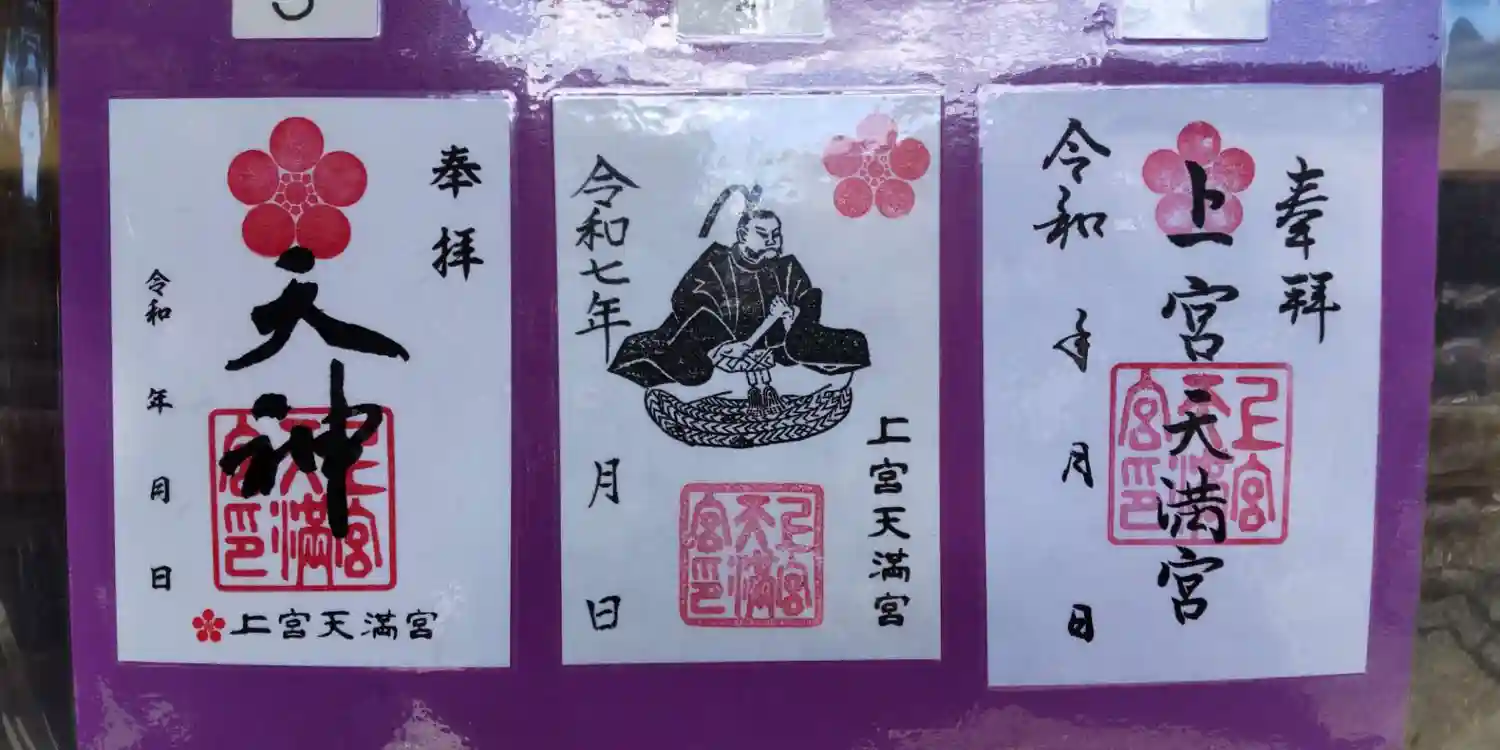 奉拝
天神
上宮天満宮印
令和 年 月 日
上宮天満宮
令和七年 月 日
上宮天満宮
上宮天満宮印
奉拜
上宮天満宮
上宮天満宮印
令和 年 月 日